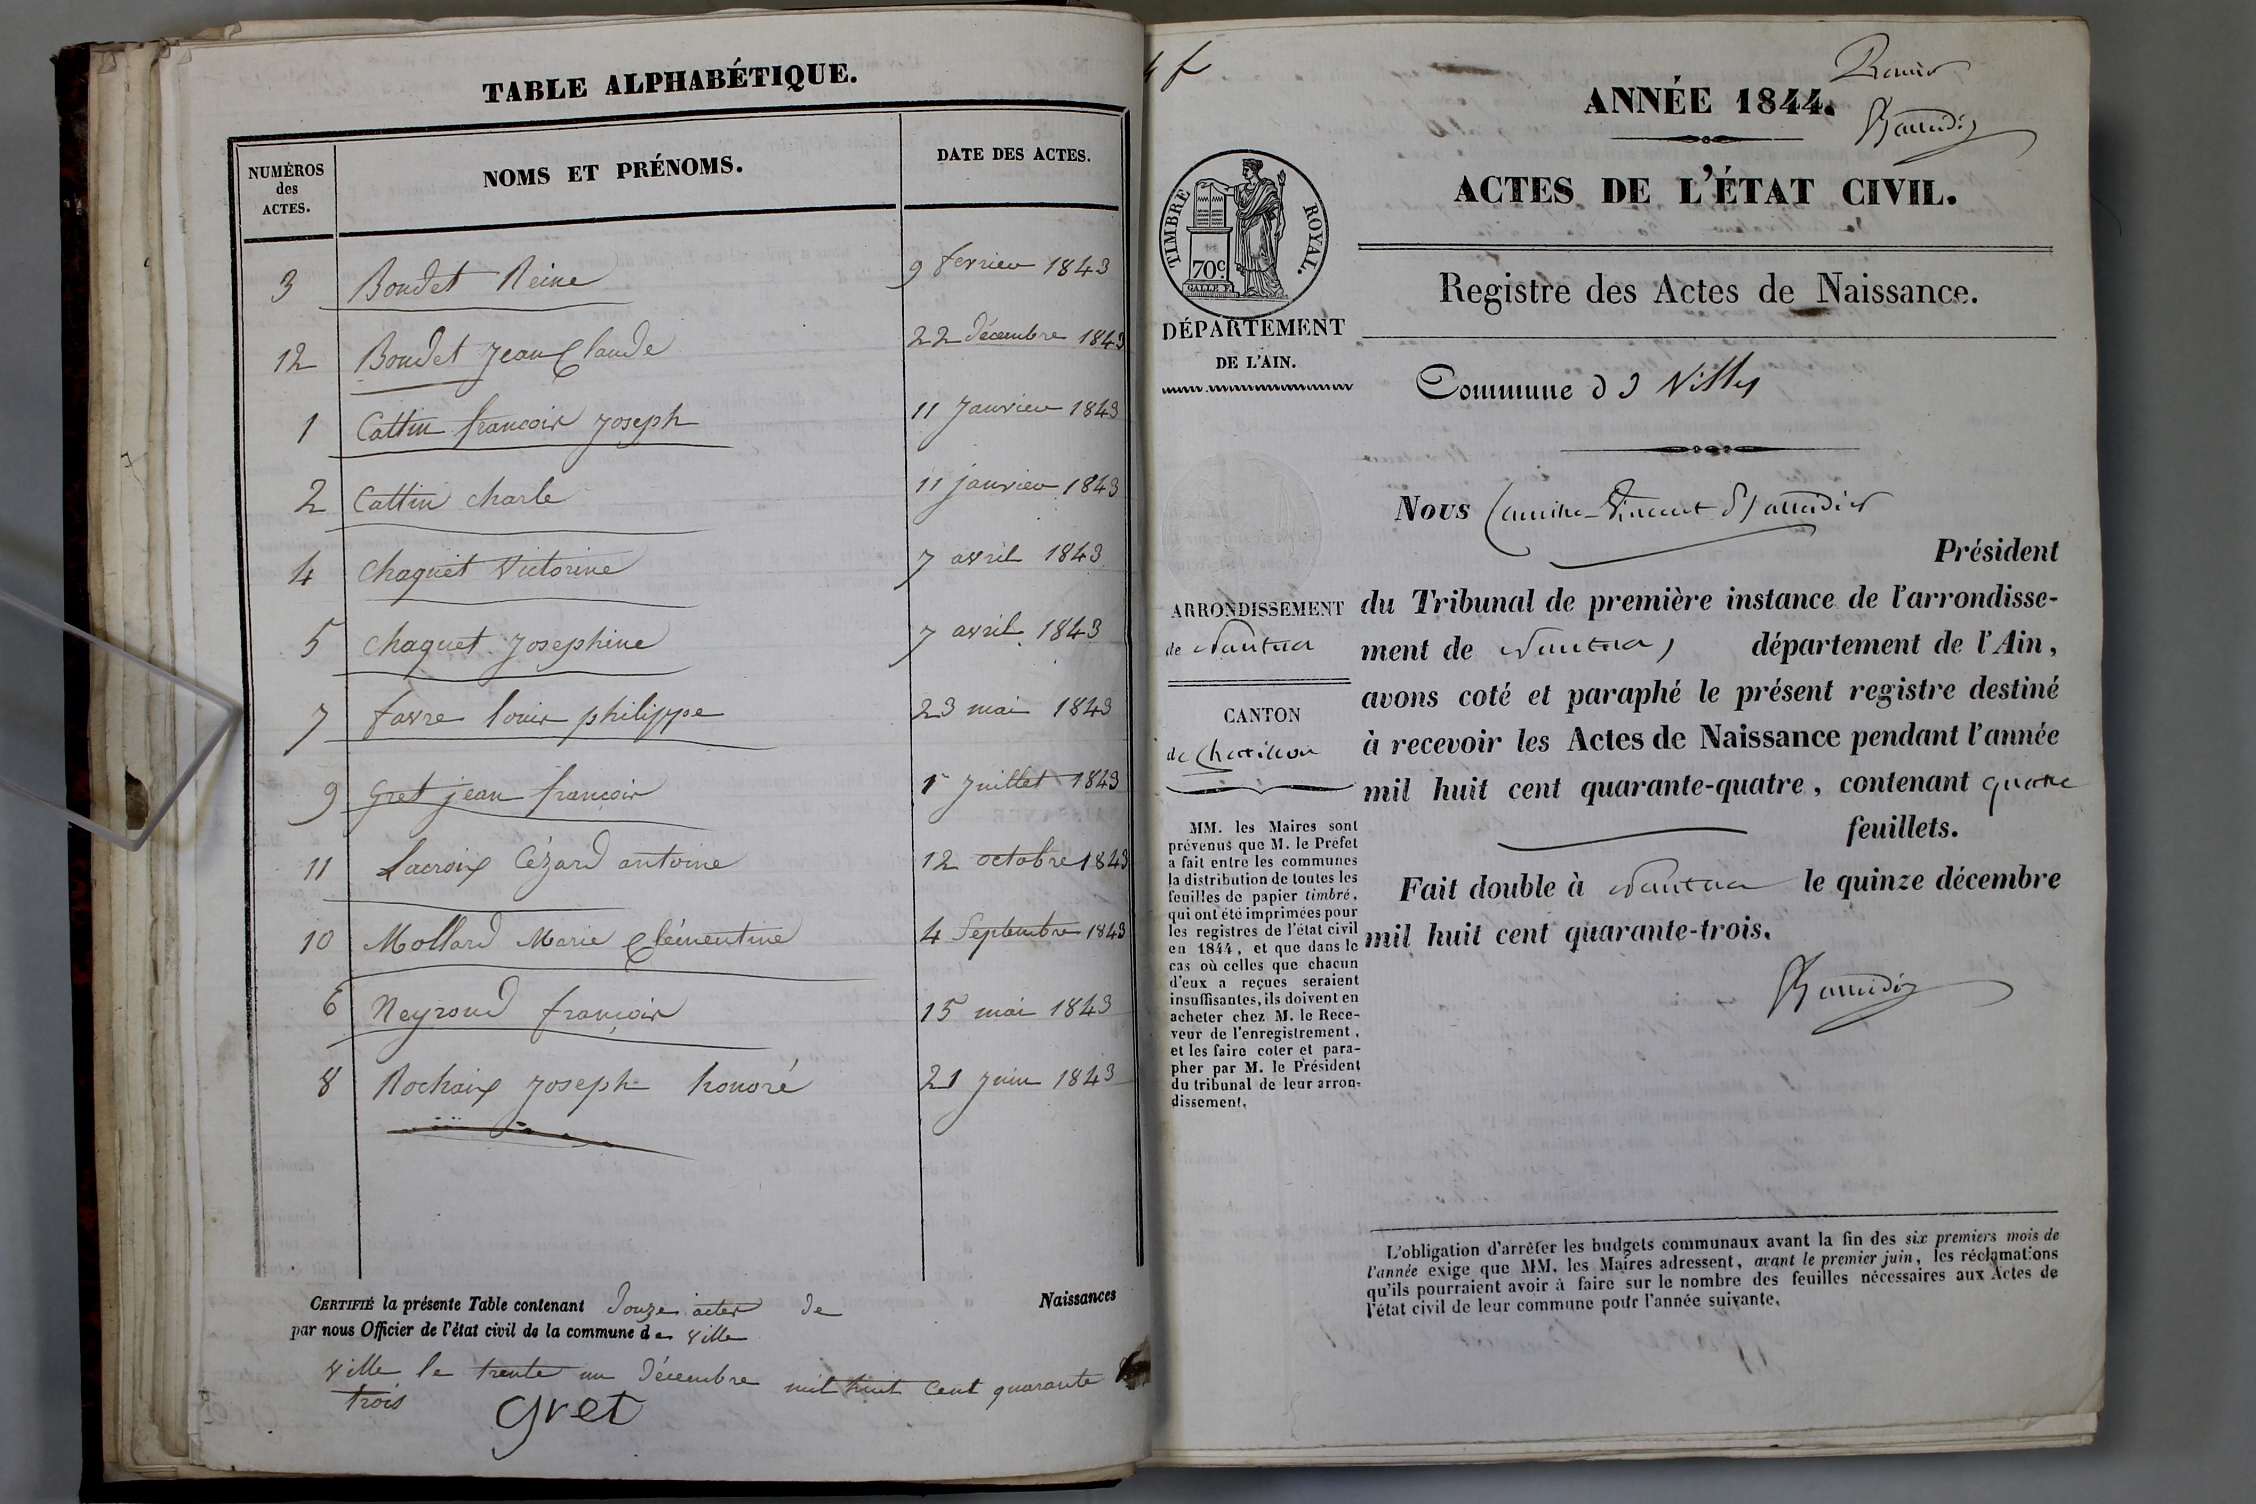 TABLE ALPHABÉTIQUE.
NUMÉROS
des
ACTES.
NOMS ET PRÉNOMS.
DATE DES ACTES.
3 Boudet Reine 9 fevrier 1843
12 Boudet Jean Claude 22 décembre 1843
1 Cattin francois Joseph 11 Janvier 1843
2 Cattin charle 11 janvier 1843
4 Chaquet Victorine 7 avril 1843
5 Chaquet Josephine 7 avril 1843
7 favre louis philippe 23 mai 1843
9 Gret jean françois 1r Juillet 1843
11 Lacroix Cézard antoine 12 octobre 1843
10 Mollard Marie Clémentine 4 Septembre 1843
6 Neyroud françois 15 mai 1843
8 Rochaix Joseph honoré 21 Juin 1843
CERTIFIÉ la présente Table contenant Douze actes de Naissances
par nous Officier de l'état civil de la commune de ville
ville le trente un Décembre mil huit cent quarante
trois
gret
4 f
Premier
ANNÉE 1844.
ACTES DE L'ÉTAT CIVIL.
TIMBRE ROYAL.
70c.
DÉPARTEMENT
DE L'AIN.
Registre des Actes de Naissance.
Commune d
Nous
Président
ARRONDISSEMENT
de Nantua
CANTON
de Chatillon
du Tribunal de première instance de l'arrondisse-
ment de Nantua, département de l'Ain,
avons coté et paraphé le présent registre destiné
à recevoir les Actes de Naissance pendant l'année
mil huit cent quarante-quatre, contenant quatre
feuillets.
Fait double à Nantua le quinze décembre
mil huit cent quarante-trois.
MM. les Maires sont
prévenus que M. le Préfet
a fait entre les communes
la distribution de toutes les
feuilles de papier timbré,
qui ont été imprimées pour
les registres de l'état civil
en 1844, et que dans le
cas où celles que chacun
d'eux a reçues seraient
insuffisantes, ils doivent en
acheter chez M. le Rece-
veur de l'enregistrement,
et les faire coter et para-
pher par M. le Président
du tribunal de leur arron-
dissement.
L'obligation d'arrêter les budgets communaux avant la fin des six premiers mois de
l'année exige que MM. les Maires adressent, avant le premier juin, les réclamations
qu'ils pourraient avoir à faire sur le nombre des feuilles nécessaires aux Actes de
l'état civil de leur commune pour l'année suivante.